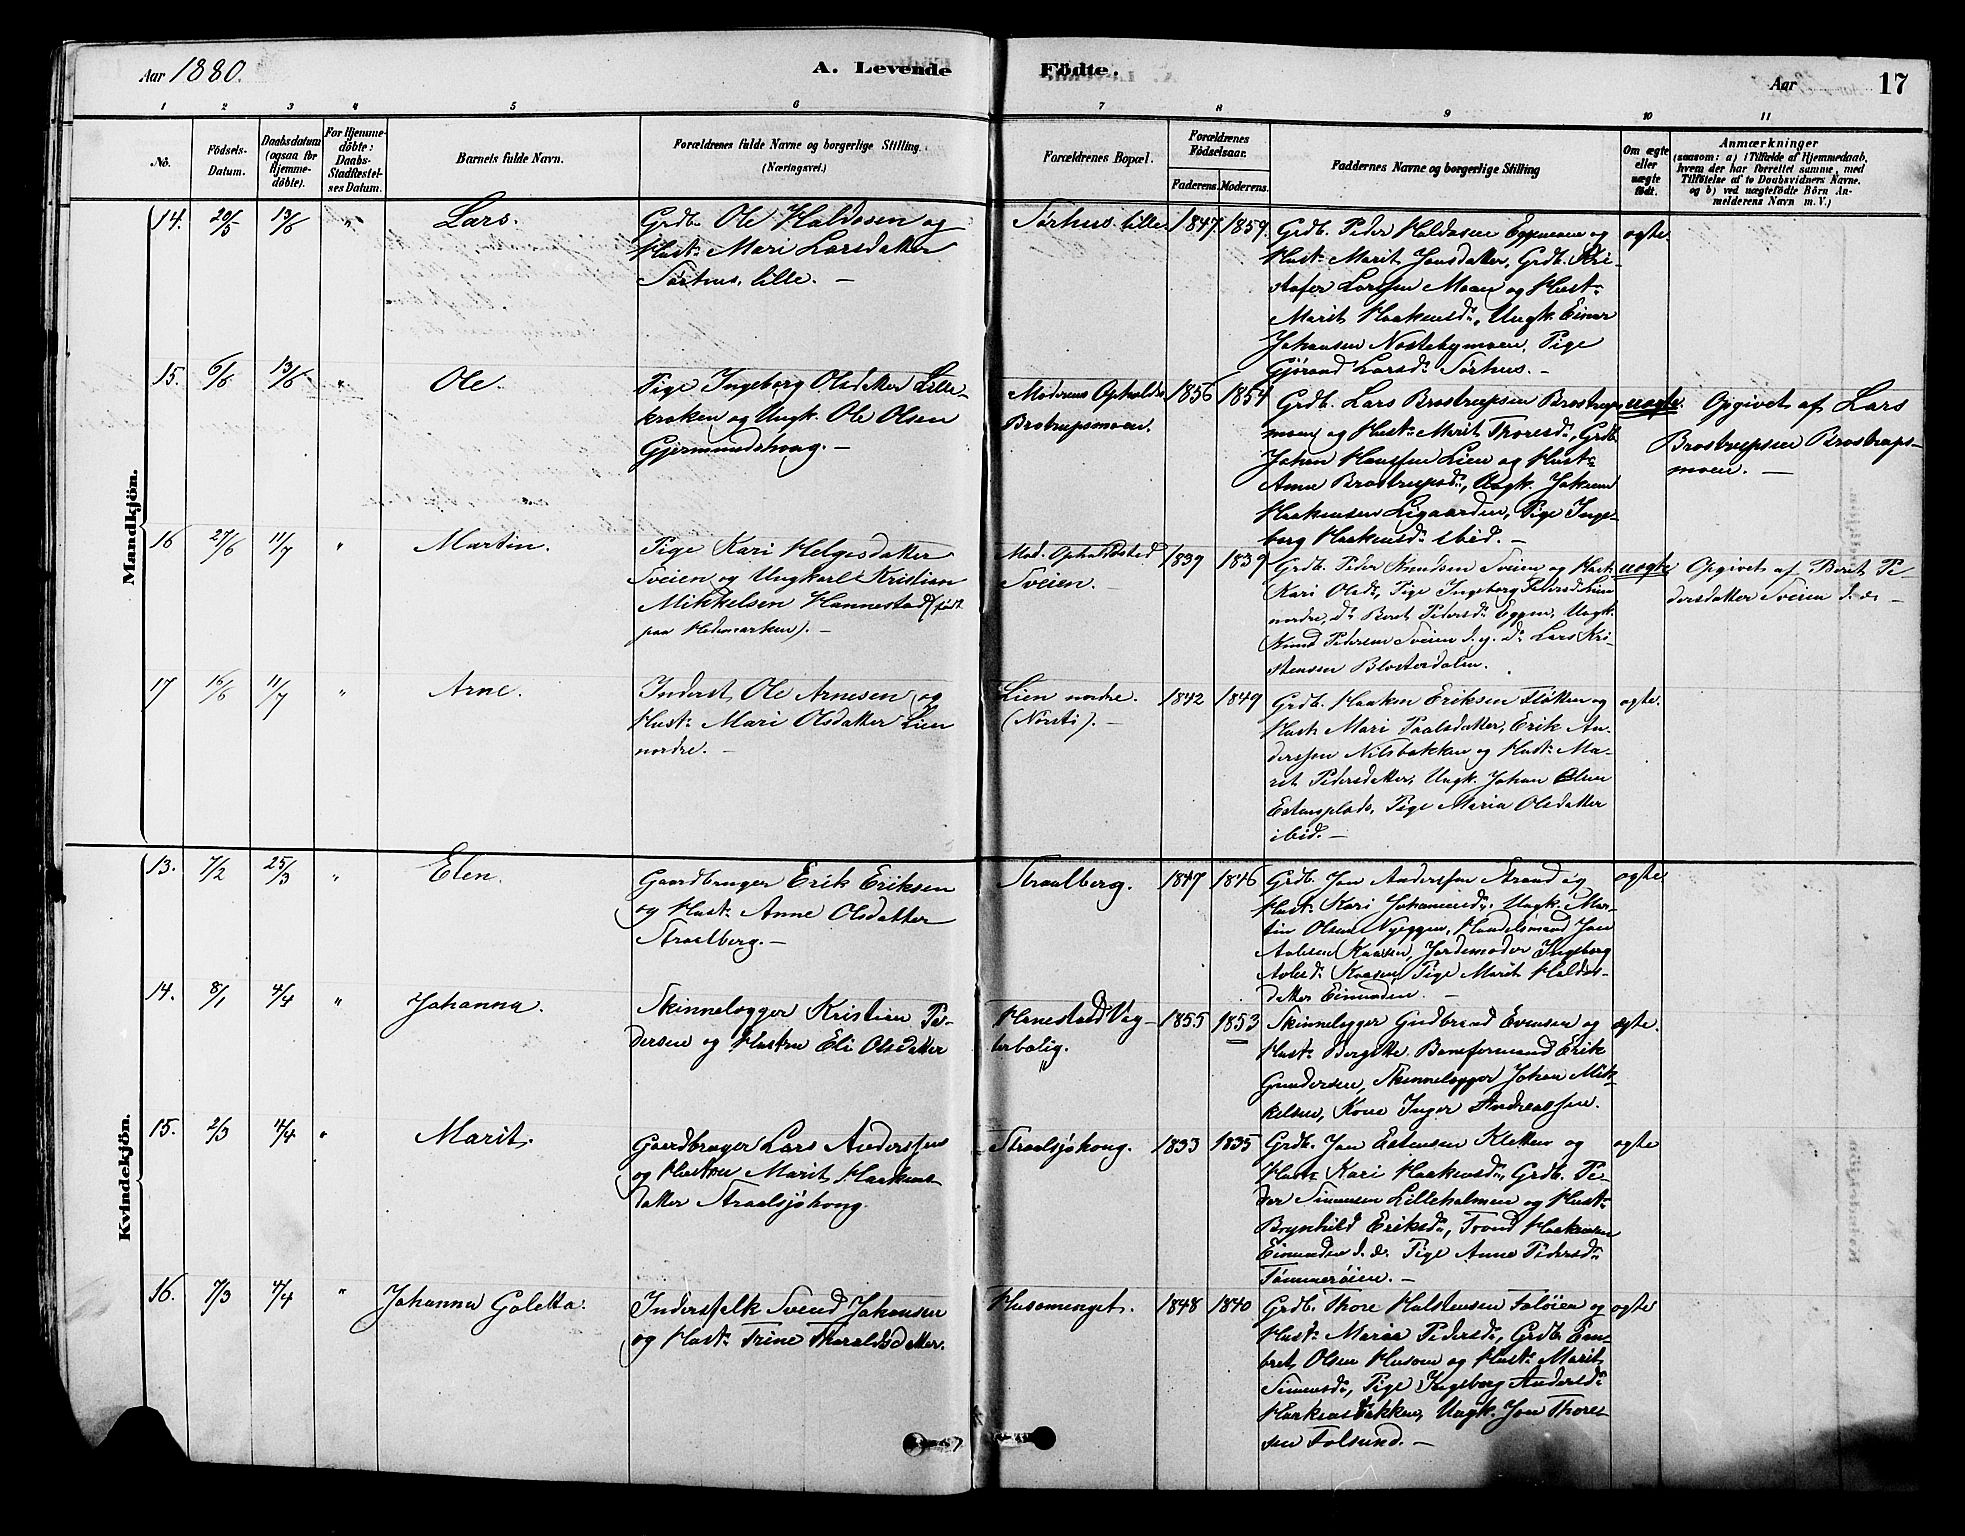 Aar 1880.
A. Levende Födte.
Aar
17
1 2 3 4 5 6 7 8 9 10 11
No.
Födsels-
Datum.
Daabsdatum
(ogsaa for
Hjemme-
döbte).
For Hjemme-
döbte:
Daabs-
Stadfæstel-
ses Datum.
Barnets fulde Navn.
Forældrenes fulde Navne og borgerlige Stilling.
(Næringsvei.)
Forældrenes Bopæl.
Forældrenes
Födselsaar.
Faderens. Moderens.
Faddernes Navne og borgerlige Stilling
Om ægte
eller
uægte
födt.
Anmærkninger
(saasom: a) i Tilfælde af Hjemmedaab,
hvem der har forrettet samme, med
Tilföielse af to Daabsvidners Navne,
og b) ved uægtefödte Börn An-
melderens Navn m. V.)
Mandkjön.
14. 20/5 13/6
Lars.
Grdb. Ole Haldosen og
Hust: Mari Larsdatter
Sørhus, lille. —
Sørhus lille
1847 1859.
Grdb. Peder Haldosen Eggmoen og
Hust: Marit Jonsdatter, Grdb. Kri-
stofer Larssen Moen og Hust:
Marit Haakensd:, Ungk. Einar
Johansen Nostebymoen, Pige
Gjøraad Larsd: Sørhus. —
ægte.
15. 6/6 13/6 "
Ole.
Pige Ingeborg Olsdatter Lille-
kroken og Ungk. Ole Olsen
Gjermundshoug. —
Moderens Opholds
Brostrupsmoen.
1856 1854
Grdb. Lars Brostrupsen Brostrups
moen og Hust: Marit Thoresd:, Grdb.
Johan Hanssen Lien og Hust:
Anne Brostrupsd:, Ungk. Johan
Haakensen Ligaarden, Pige Inge-
borg Haakensd: ibid. —
uægte.
Opgivet af Lars
Brostrupsen Brostrups-
moen. —
16 27/6 11/7 "
Martin.
Pige Kari Helgesdatter
Sveien og Ungkarl Kristian
Mikkelsen Hannestad (født
paa Hedemarken). —
Mod. Opholdssted
Sveien.
1839 1839
Grdb. Peder Knudsen Sveien og Hust:
Kari Olsd:, Pige Ingeborg Pedersd: Lien
nordre, d: Beret Pedersd: Eggen, Ungk.
Knud Pedersen Sveien d. y. d: Lars Kri-
stensen Blosterdalen.
uægte
Opgivet af Beret Pe-
dersdatter Sveien d. æ —
17 16/6 11/7 "
Arne.
Inderst Ole Arnesen og
Hust: Mari Olsdatter Lien
nordre. —
Lien nordre.
(Norsti). —
1842 1849
Grdb. Haaken Eriksen Fløtten og
Hust: Mari Paalsdatter, Erik An-
derssen Nilsbakken og Hust: Ma-
rit Pedersdatter, Ungk. Johan Olsen
Estensplads, Pige Maria Olsdatter
ibid. —
ægte.
Kvindekjön.
13. 7/2 25/3 "
Elen.
Gaardbruger Erik Eriksen
og Hust: Anne Olsdatter
Straalberg. —
Straalberg.
1847 1846
Grdb. Jon Anderssen Strand og
Hust: Kari Johannesd:, Ungk. Mar-
tin Olsen Nyeggen, Handelsmand Jon
Kaasen, Jordemoder Ingeborg
Kaasen, Pige Marit Haldos-
datter Eimunden. —
ægte
14. 8/1 4/4 "
Johanna.
Skinnelægger Kristian Pe-
dersen og Hustru Eli Olsdatter
Hanestad Vog-
terbolig.
1855 1853
Skinnelægger Gudbrand Evensen og
Hust: Bergitte. Baneformand Erik
Gundersen, Skinnelægger Johan Mik-
kelsen, Kone Inger Andreassen.
ægte.
15. 2/3 4/4 "
Marit.
Gaardbruger Lars Anderssen
og Hustru Marit Haakens-
datter Straalsjøhoug.
Straalsjøhoug.
1833 1835
Grdb. Jon Estensen Kletten og
Hust: Kari Haakensd:, Grdb. Pe-
der Simensen Lilleholmen og Hust:
Brynhild Eriksd:, Trond Haakensen
Eimunden d. æ. Pige Anne Pedersd:
Tømmerøien. —
ægte
16. 7/3 4/4 "
Johanna Goletta.
Inderstfolk Svend Johansen
og Hust: Trine Thoraldsdatter.
Husomenget.
1848 1840
Grdb. Thore Halstensen Foløien og
Hust: Maria Pedersd:, Grdb. Em-
bret Olsen Husom og Hust: Marit
Simensd:, Pige Ingeborg Andersd:
Haakensbakken, Ungk. Jon Thore-
sen Folsund. —
ægte